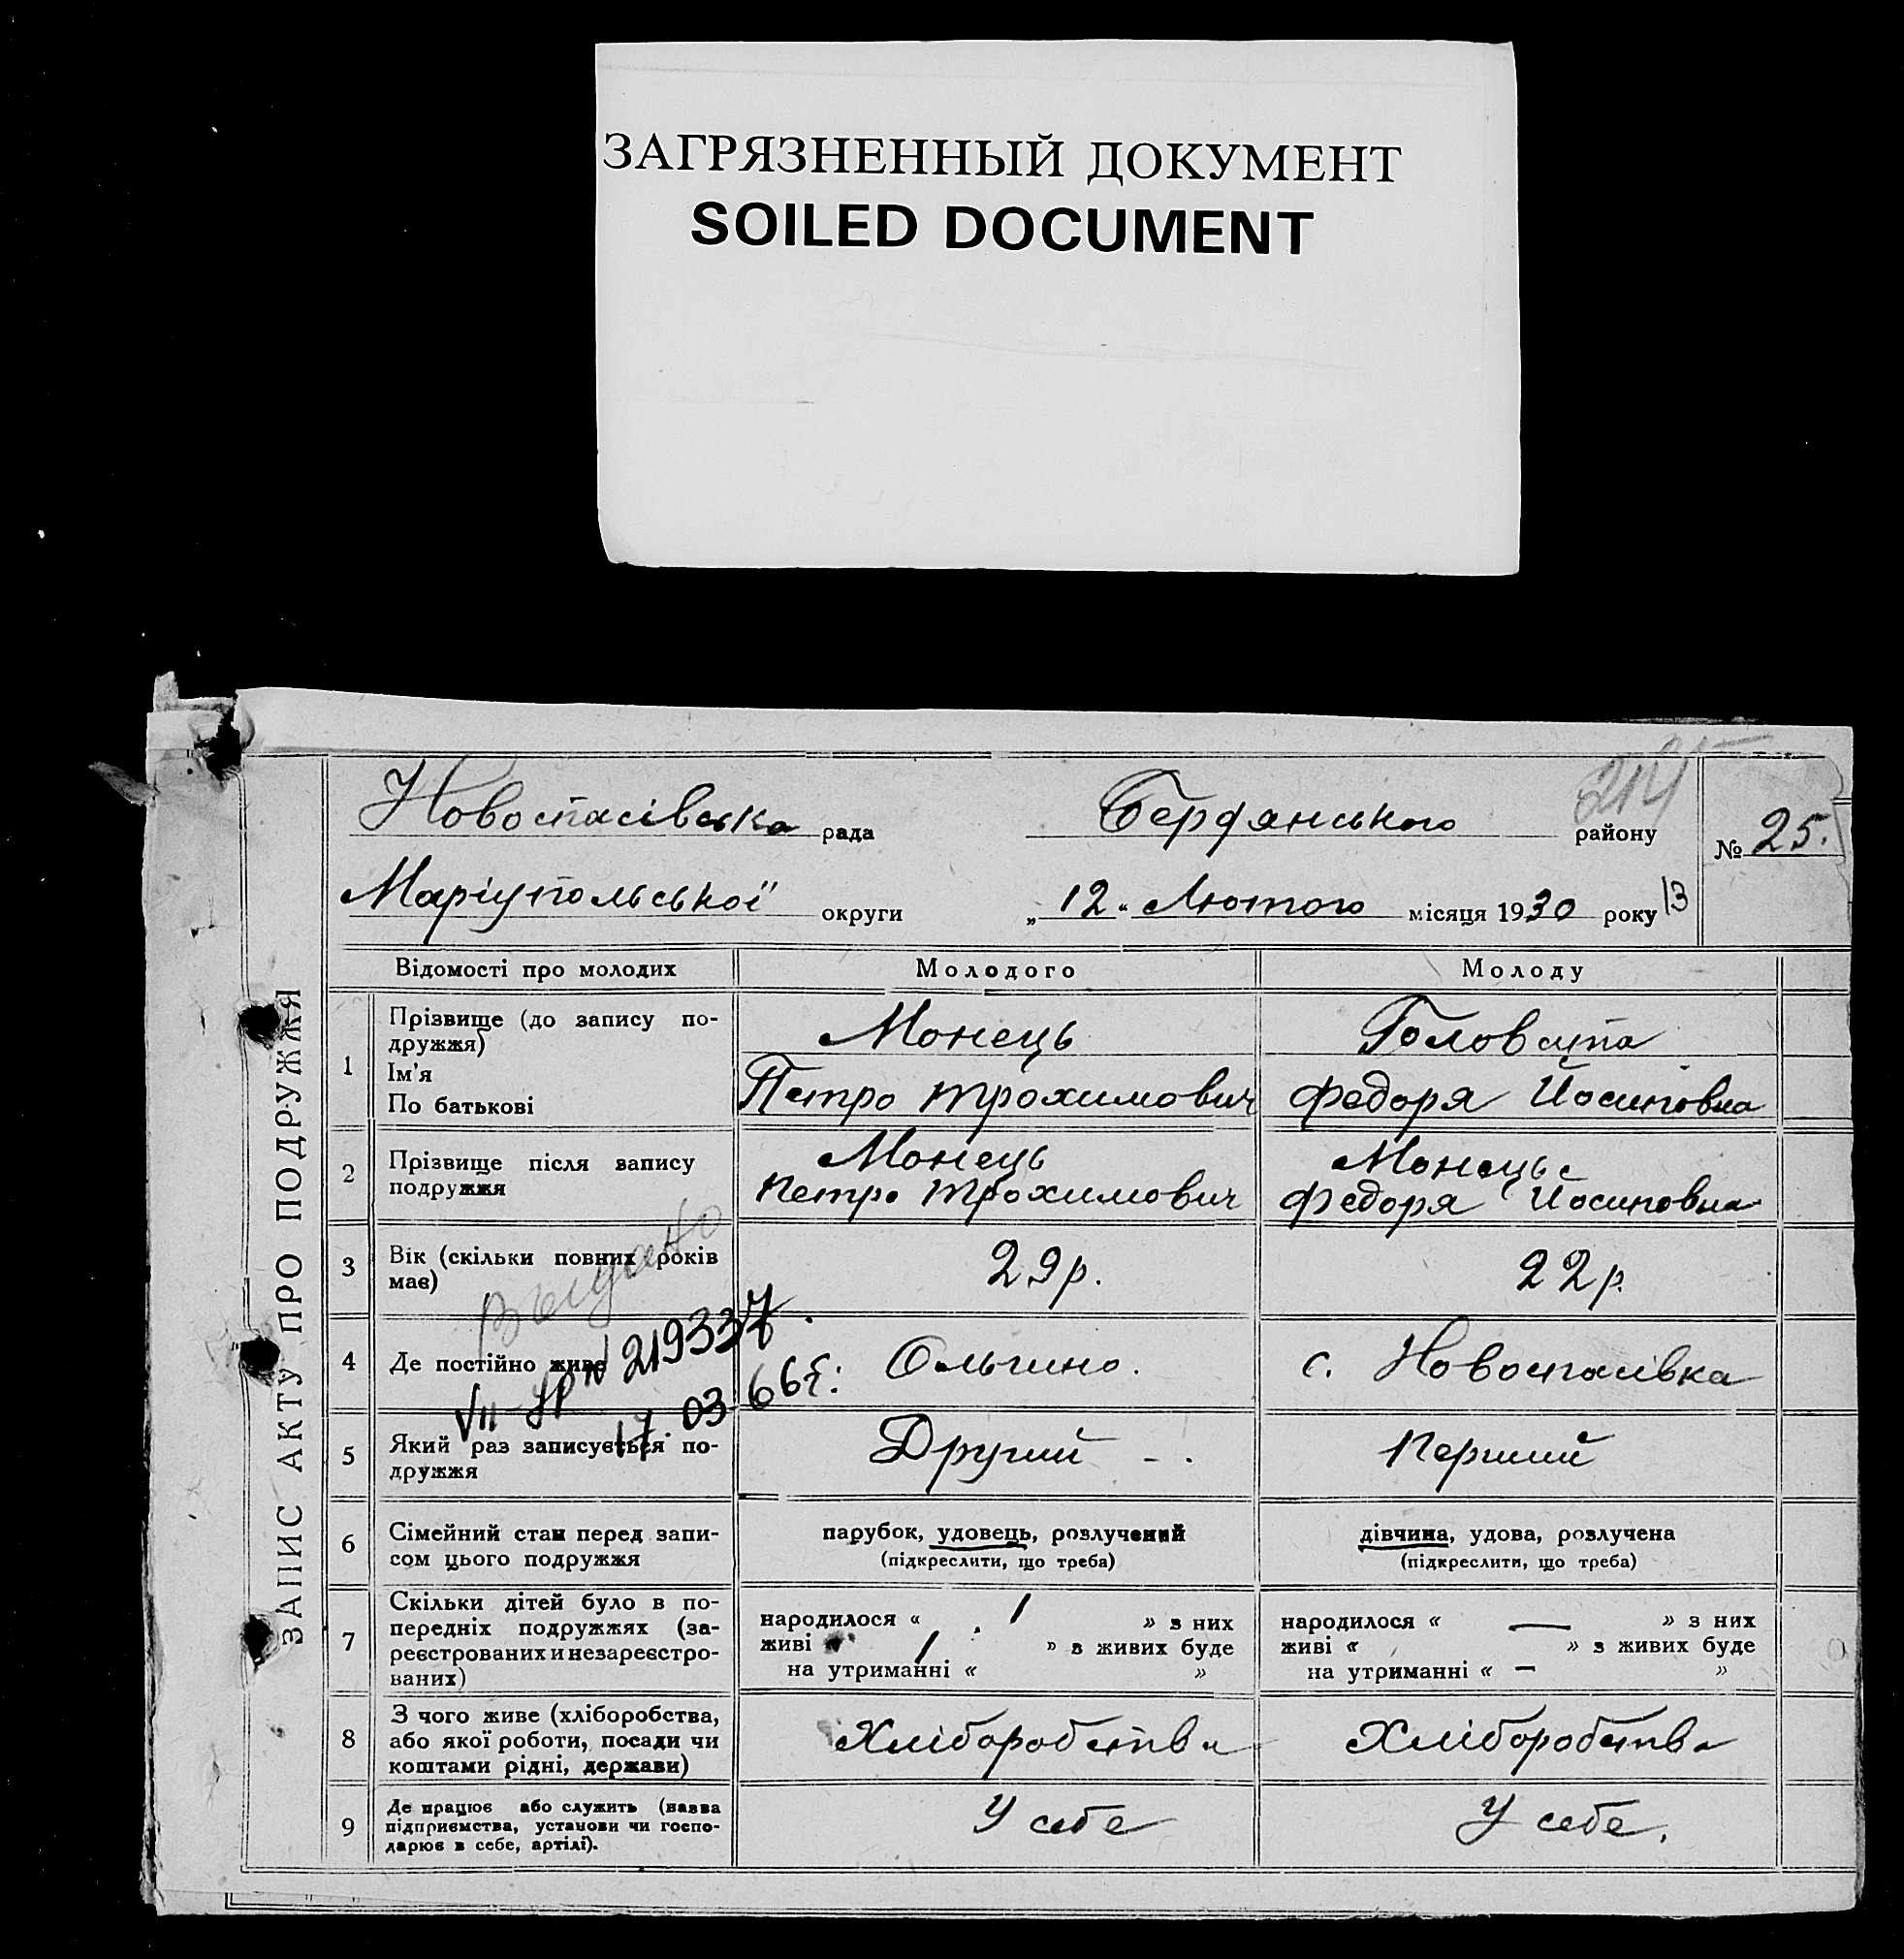 ЗАГРЯЗНЕННЫЙ ДОКУМЕНТ
SOILED DOCUMENT
ЗАПИС АКТУ ПРО ПОДРУЖЖЯ
Новоспасівська рада Бердянського району № 25.
Маріупольської округи „12" Лютого місяця 1930 року 13
Відомості про молодих Молодого Молоду
1 Прізвище (до запису по-
дружжя) Монець
Ім'я
По батькові Петро Трохимович Федоря Йосиповна
2 Прізвище після запису
подружжя Монець Монець
Петро Трохимович Федоря Йосиповна
3 Вік (скільки повних років
має) 29 р. 22 р.
Выдано
4 Де постійно живе Ольгино. с. Новоспасівка
VII-ЯР N 219337
17.03.66 г.
5 Який раз записується по-
дружжя Другий Перший
6 Сімейний стан перед запи-
сом цього подружжя
парубок, удовець, розлучений
(підкреслити, що треба)
дівчина, удова, розлучена
(підкреслити, що треба)
7 Скільки дітей було в по-
передніх подружжях (за-
реєстрованих и незареєстро-
ваних)
народилося « 1 » з них
живі « 1 » з живих буде
на утриманні « »
народилося « — » з них
живі « » з живих буде
на утриманні « — »
8 З чого живе (хліборобства,
або якої роботи, посади чи
коштами рідні, держави)
Хліборобства Хліборобства
9 Де працює або служить (назва
підприємства, установи чи госпо-
дарює в себе, артілі).
У себе У себе.